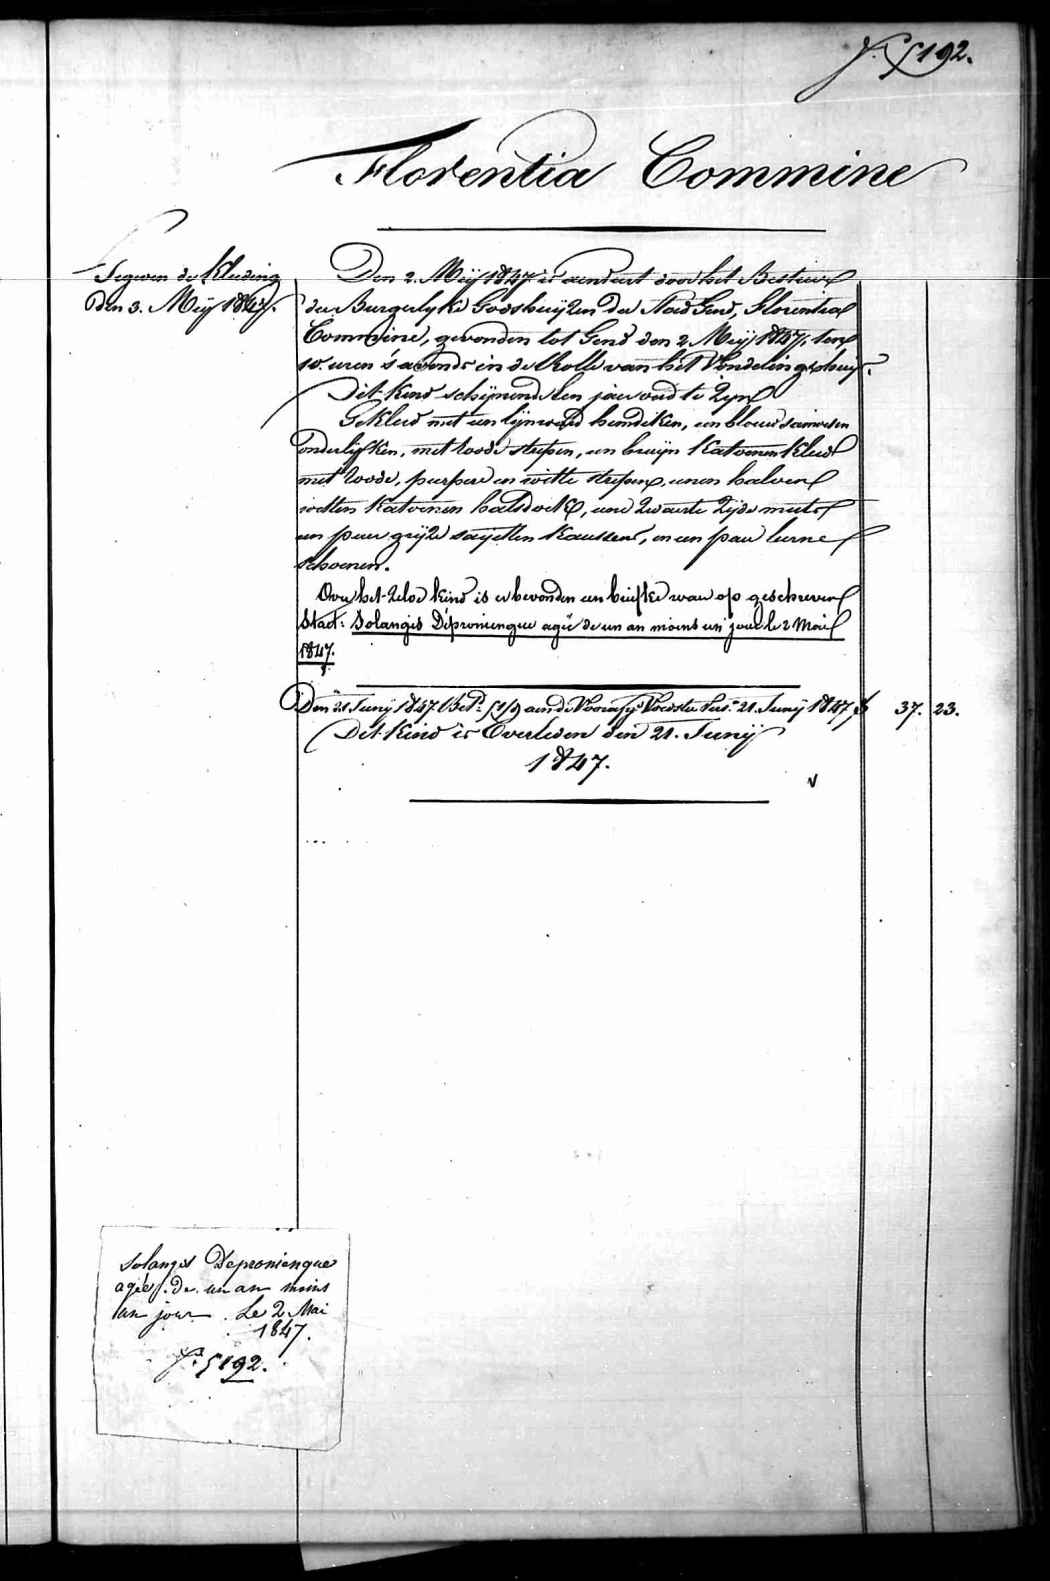 5192.
Florentia Commine
Gegeven de Kleding
den 3. Meÿ 1847.
Den 2. Meÿ 1847 is aenveert door het Bestier
der Burgerlyke Godshuijzen der Stad Gend, Florentia
Commine, gevonden tot Gend den 2 Meÿ 1847, ten
10. uren s'avonds in de Rolle van het Vondelingshuijs.
Dit kind schijnende een jaer oud te Zyn
Gekleed met een lijnwaed hemdeken, een blauw saiwesen
onderlijfken, met roode strepen, een bruijn Katoenen Kleed
met roode, purpere en witte strepen, eenen halven
witten Katoenen halsdoek, eene Zwarte Zijde muts
een paer grijze saijetten Kaussens, en een paer leerne
schoenen.
Over het Zelve kind is er bevonden een briefke waer op geschreven
staet: Solanges Déproniengue agée de un an moins un jour le 2 Mai
1847.
Den 21 Junij 1847 Bet. aen de Voorsz. Voedster tot 21. Junij 1847, f 37. 23.
Dit Kind is Overleden den 21. Junij
1847.
Solanges Deproniengue
agée de un an moins
un jour. Le 2 Mai
1847.
5192.